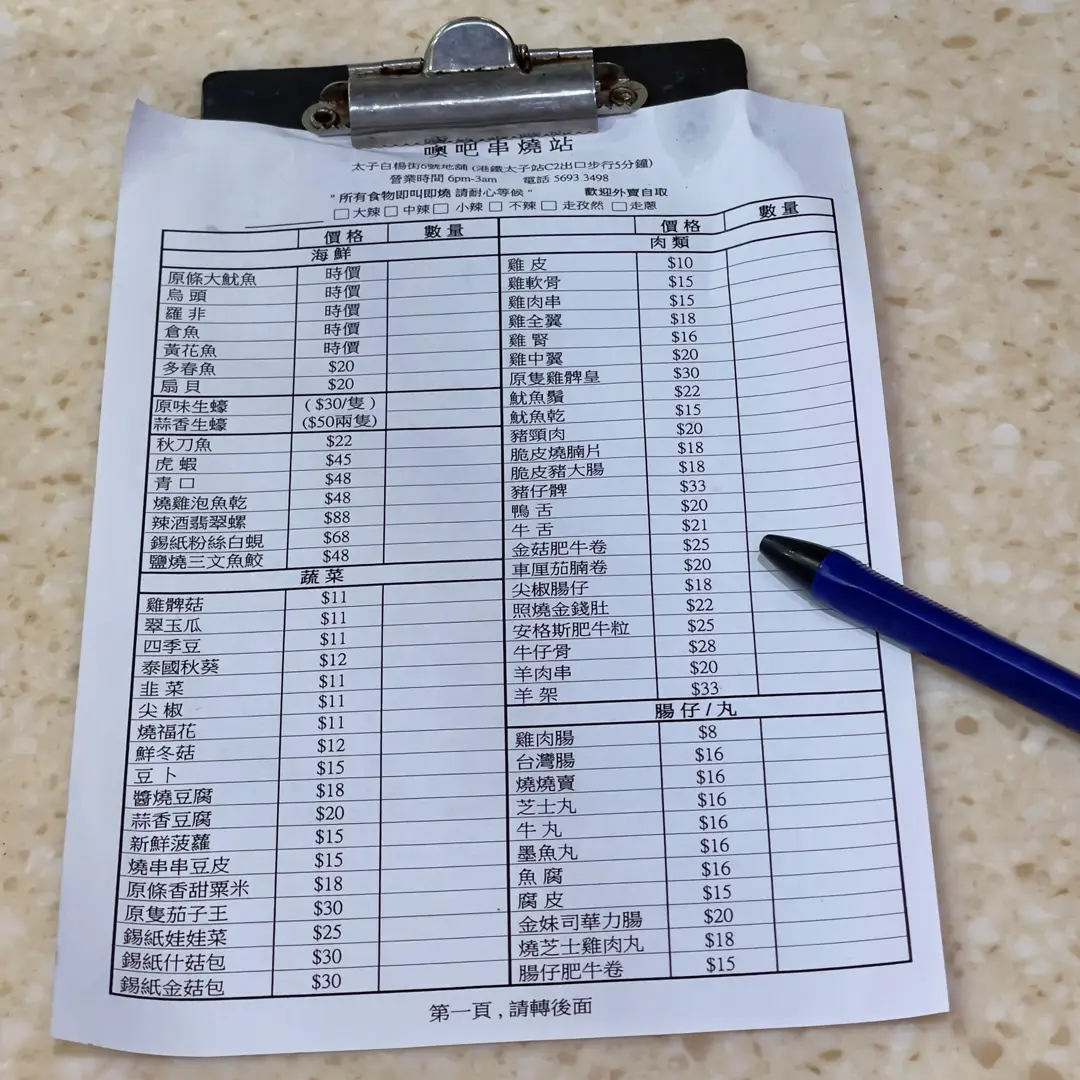 噢吧串燒站
太子白楊街6號地舖 (港鐵太子站C2出口步行5分鐘)
營業時間 6pm-3am 電話 5693 3498
" 所有食物即叫即燒 請耐心等候 " 歡迎外賣自取
大辣 中辣 小辣 不辣 走孜然 走蔥
價格 數量
海鮮
原條大魷魚 時價
烏頭 時價
羅非 時價
倉魚 時價
黃花魚 時價
多春魚 $20
扇貝 $20
原味生蠔 ( $30/隻 )
蒜香生蠔 ($50兩隻)
秋刀魚 $22
虎蝦 $45
青口 $48
燒雞泡魚乾 $48
辣酒翡翠螺 $88
錫紙粉絲白蜆 $68
鹽燒三文魚鮫 $48
蔬菜
雞髀菇 $11
翠玉瓜 $11
四季豆 $11
泰國秋葵 $12
韭菜 $11
尖椒 $11
燒福花 $11
鮮冬菇 $12
豆卜 $15
醬燒豆腐 $18
蒜香豆腐 $20
新鮮菠蘿 $15
燒串串豆皮 $15
原條香甜粟米 $18
原隻茄子王 $30
錫紙娃娃菜 $25
錫紙什菇包 $30
錫紙金菇包 $30
價格 數量
肉類
雞皮 $10
雞軟骨 $15
雞肉串 $15
雞全翼 $18
雞腎 $16
雞中翼 $20
原隻雞髀皇 $30
魷魚鬚 $22
魷魚乾 $15
豬頸肉 $20
脆皮燒腩片 $18
脆皮豬大腸 $18
豬仔髀 $33
鴨舌 $20
牛舌 $21
金菇肥牛卷 $25
車厘茄腩卷 $20
尖椒腸仔 $18
照燒金錢肚 $22
安格斯肥牛粒 $25
牛仔骨 $28
羊肉串 $20
羊架 $33
腸仔/丸
雞肉腸 $8
台灣腸 $16
燒燒賣 $16
芝士丸 $16
牛丸 $16
墨魚丸 $16
魚腐 $16
腐皮 $15
金妹司華力腸 $20
燒芝士雞肉丸 $18
腸仔肥牛卷 $15
第一頁 , 請轉後面